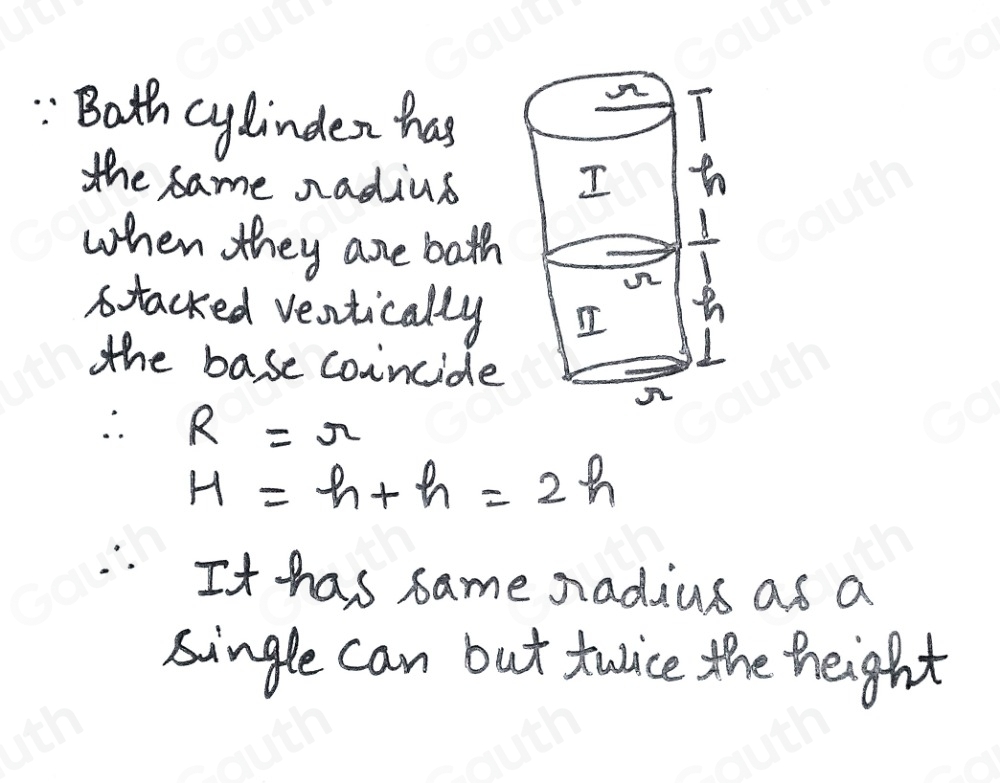 ∵ Bath cylinder has
the same radius
when they are bath
stacked vertically
the base coincide
∴ R = r
H = h + h = 2h
∴ It has same radius as a
single can but twice the height
r
I
h
r
II
h
r
Gauth